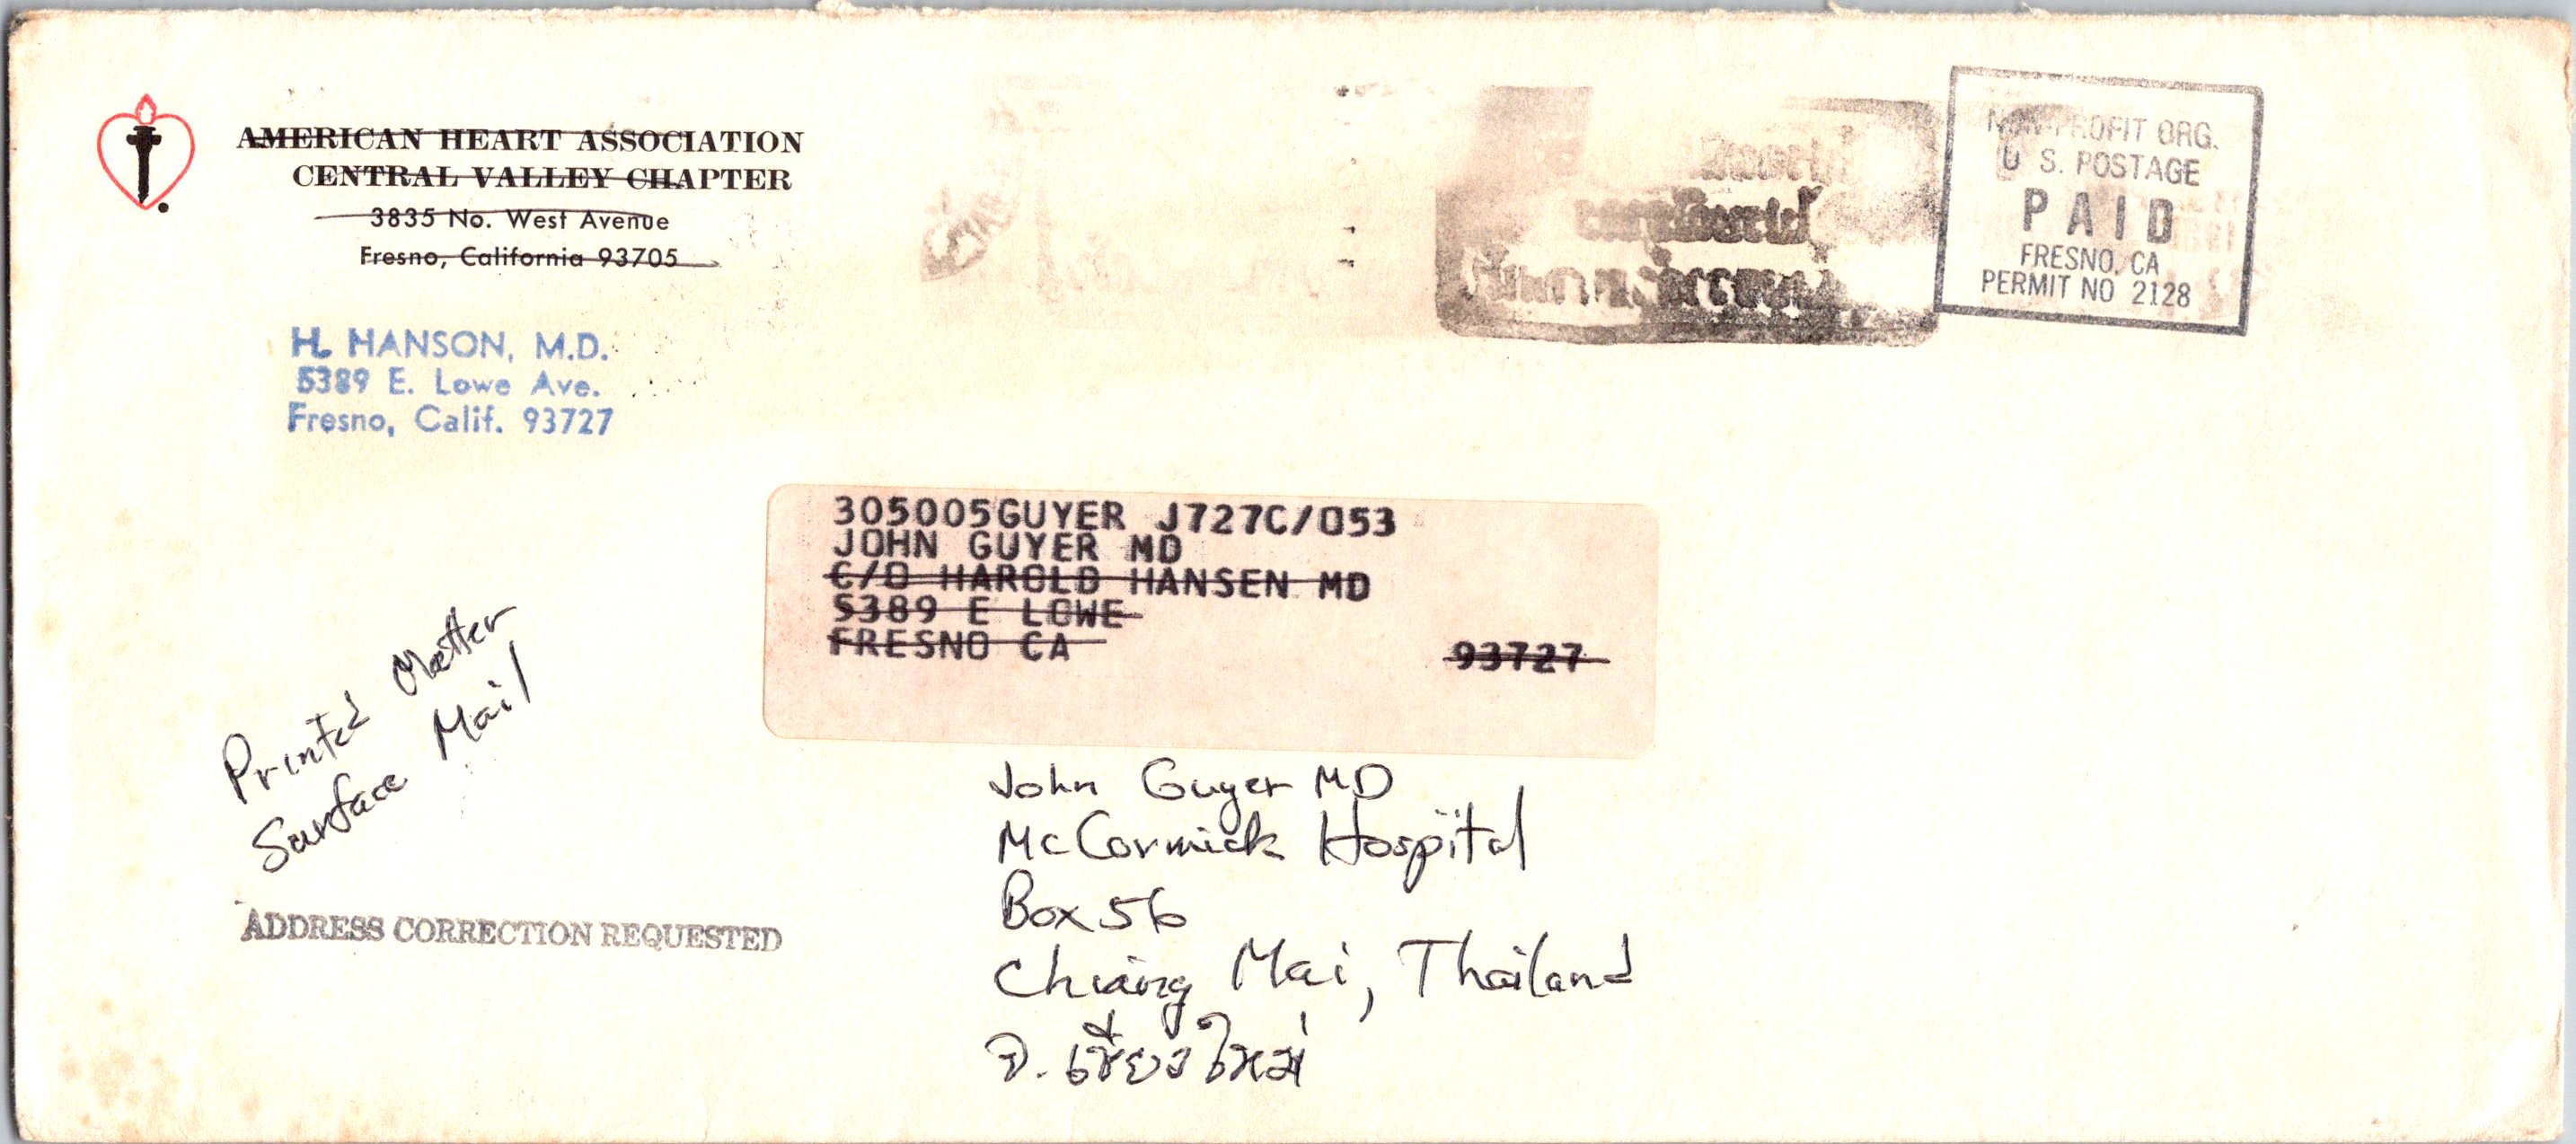 AMERICAN HEART ASSOCIATION
CENTRAL VALLEY CHAPTER
3835 No. West Avenue
Fresno, California 93705
H. HANSON, M.D.
5389 E. Lowe Ave.
Fresno, Calif. 93727
NON-PROFIT ORG.
U S. POSTAGE
PAID
FRESNO, CA
PERMIT NO 2128
305005GUYER J727C/053
JOHN GUYER MD
C/O HAROLD HANSEN MD
5389 E LOWE
FRESNO CA 93727
Printed Matter
Surface Mail
ADDRESS CORRECTION REQUESTED
John Guyer MD
McCormick Hospital
Box 56
Chiang Mai, Thailand
จ. เชียงใหม่